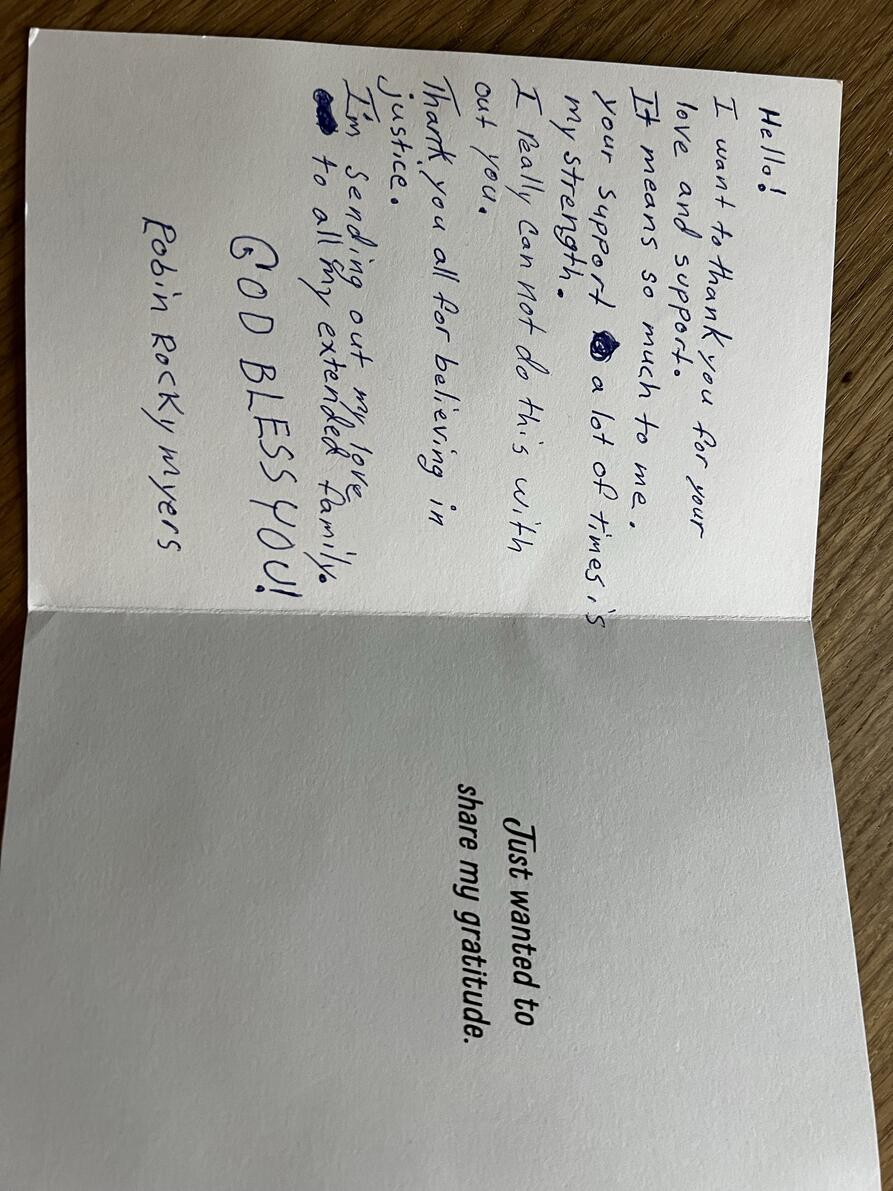 Hello!
I want to thank you for your
love and support.
It means so much to me.
your support a lot of times is
my strength.
I really can not do this with
out you.
Thank you all for believing in
justice.
I'm sending out my love
to all my extended family.
GOD BLESS YOU!
Robin Rocky myers
Just wanted to
share my gratitude.